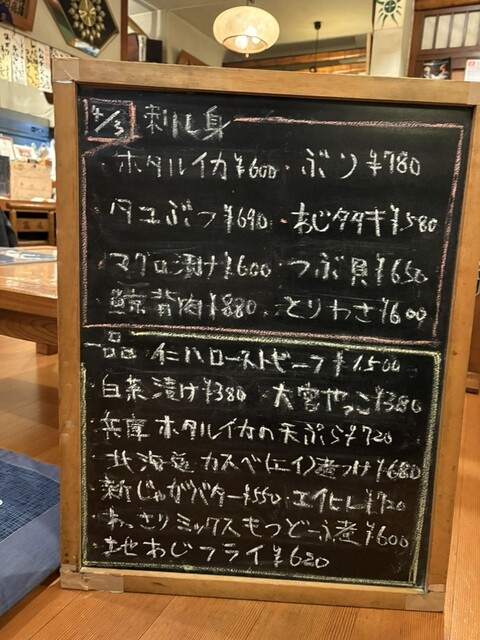 4/3 刺し身
・ホタルイカ¥600・ぶり¥780
・タコぶつ¥690・あじタタキ¥580
・マグロ漬け¥600・つぶ貝¥650
・鯨背肉¥880・とりわさ¥600
一品・仁ハローストビーフ¥1,500
・白菜漬け¥380・大宮やっこ¥380
・兵庫ホタルイカの天ぷら¥720
・北海道カスベ(エイ)煮つけ¥680
・新じゃがバター¥550・エイヒレ¥720
・あっさりミックスもつどーふ煮¥600
・地あじフライ¥620